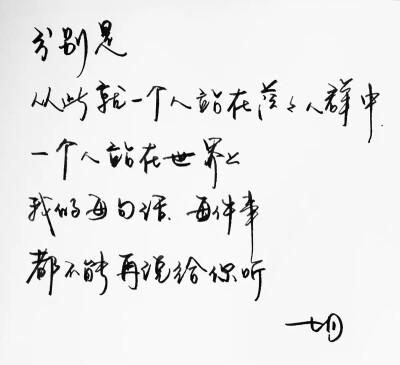 分别是
从此就一个人站在茫々人群中
一个人站在世界上
我的每句话、每件事
都不能再说给你听